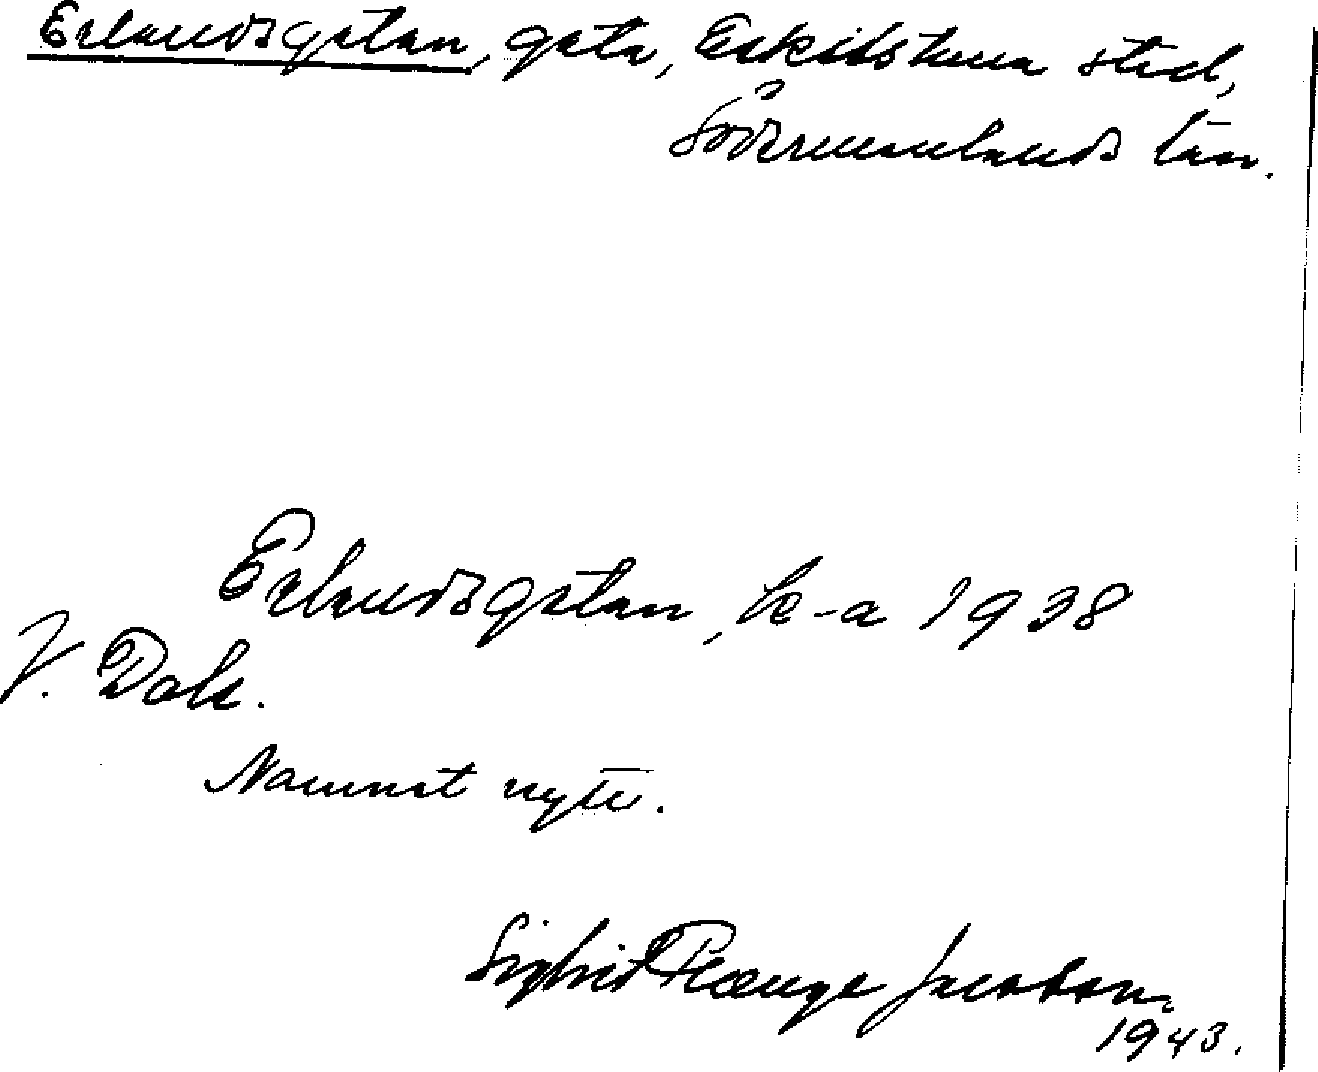 Erlandsgatan, gata, Eskilstuna stad,
Södermanlands län.
Erlandsgatan, k-a 1938
V. Dals.
Namnet nytt.
Sigfrid Plænge Jacobson
1943.